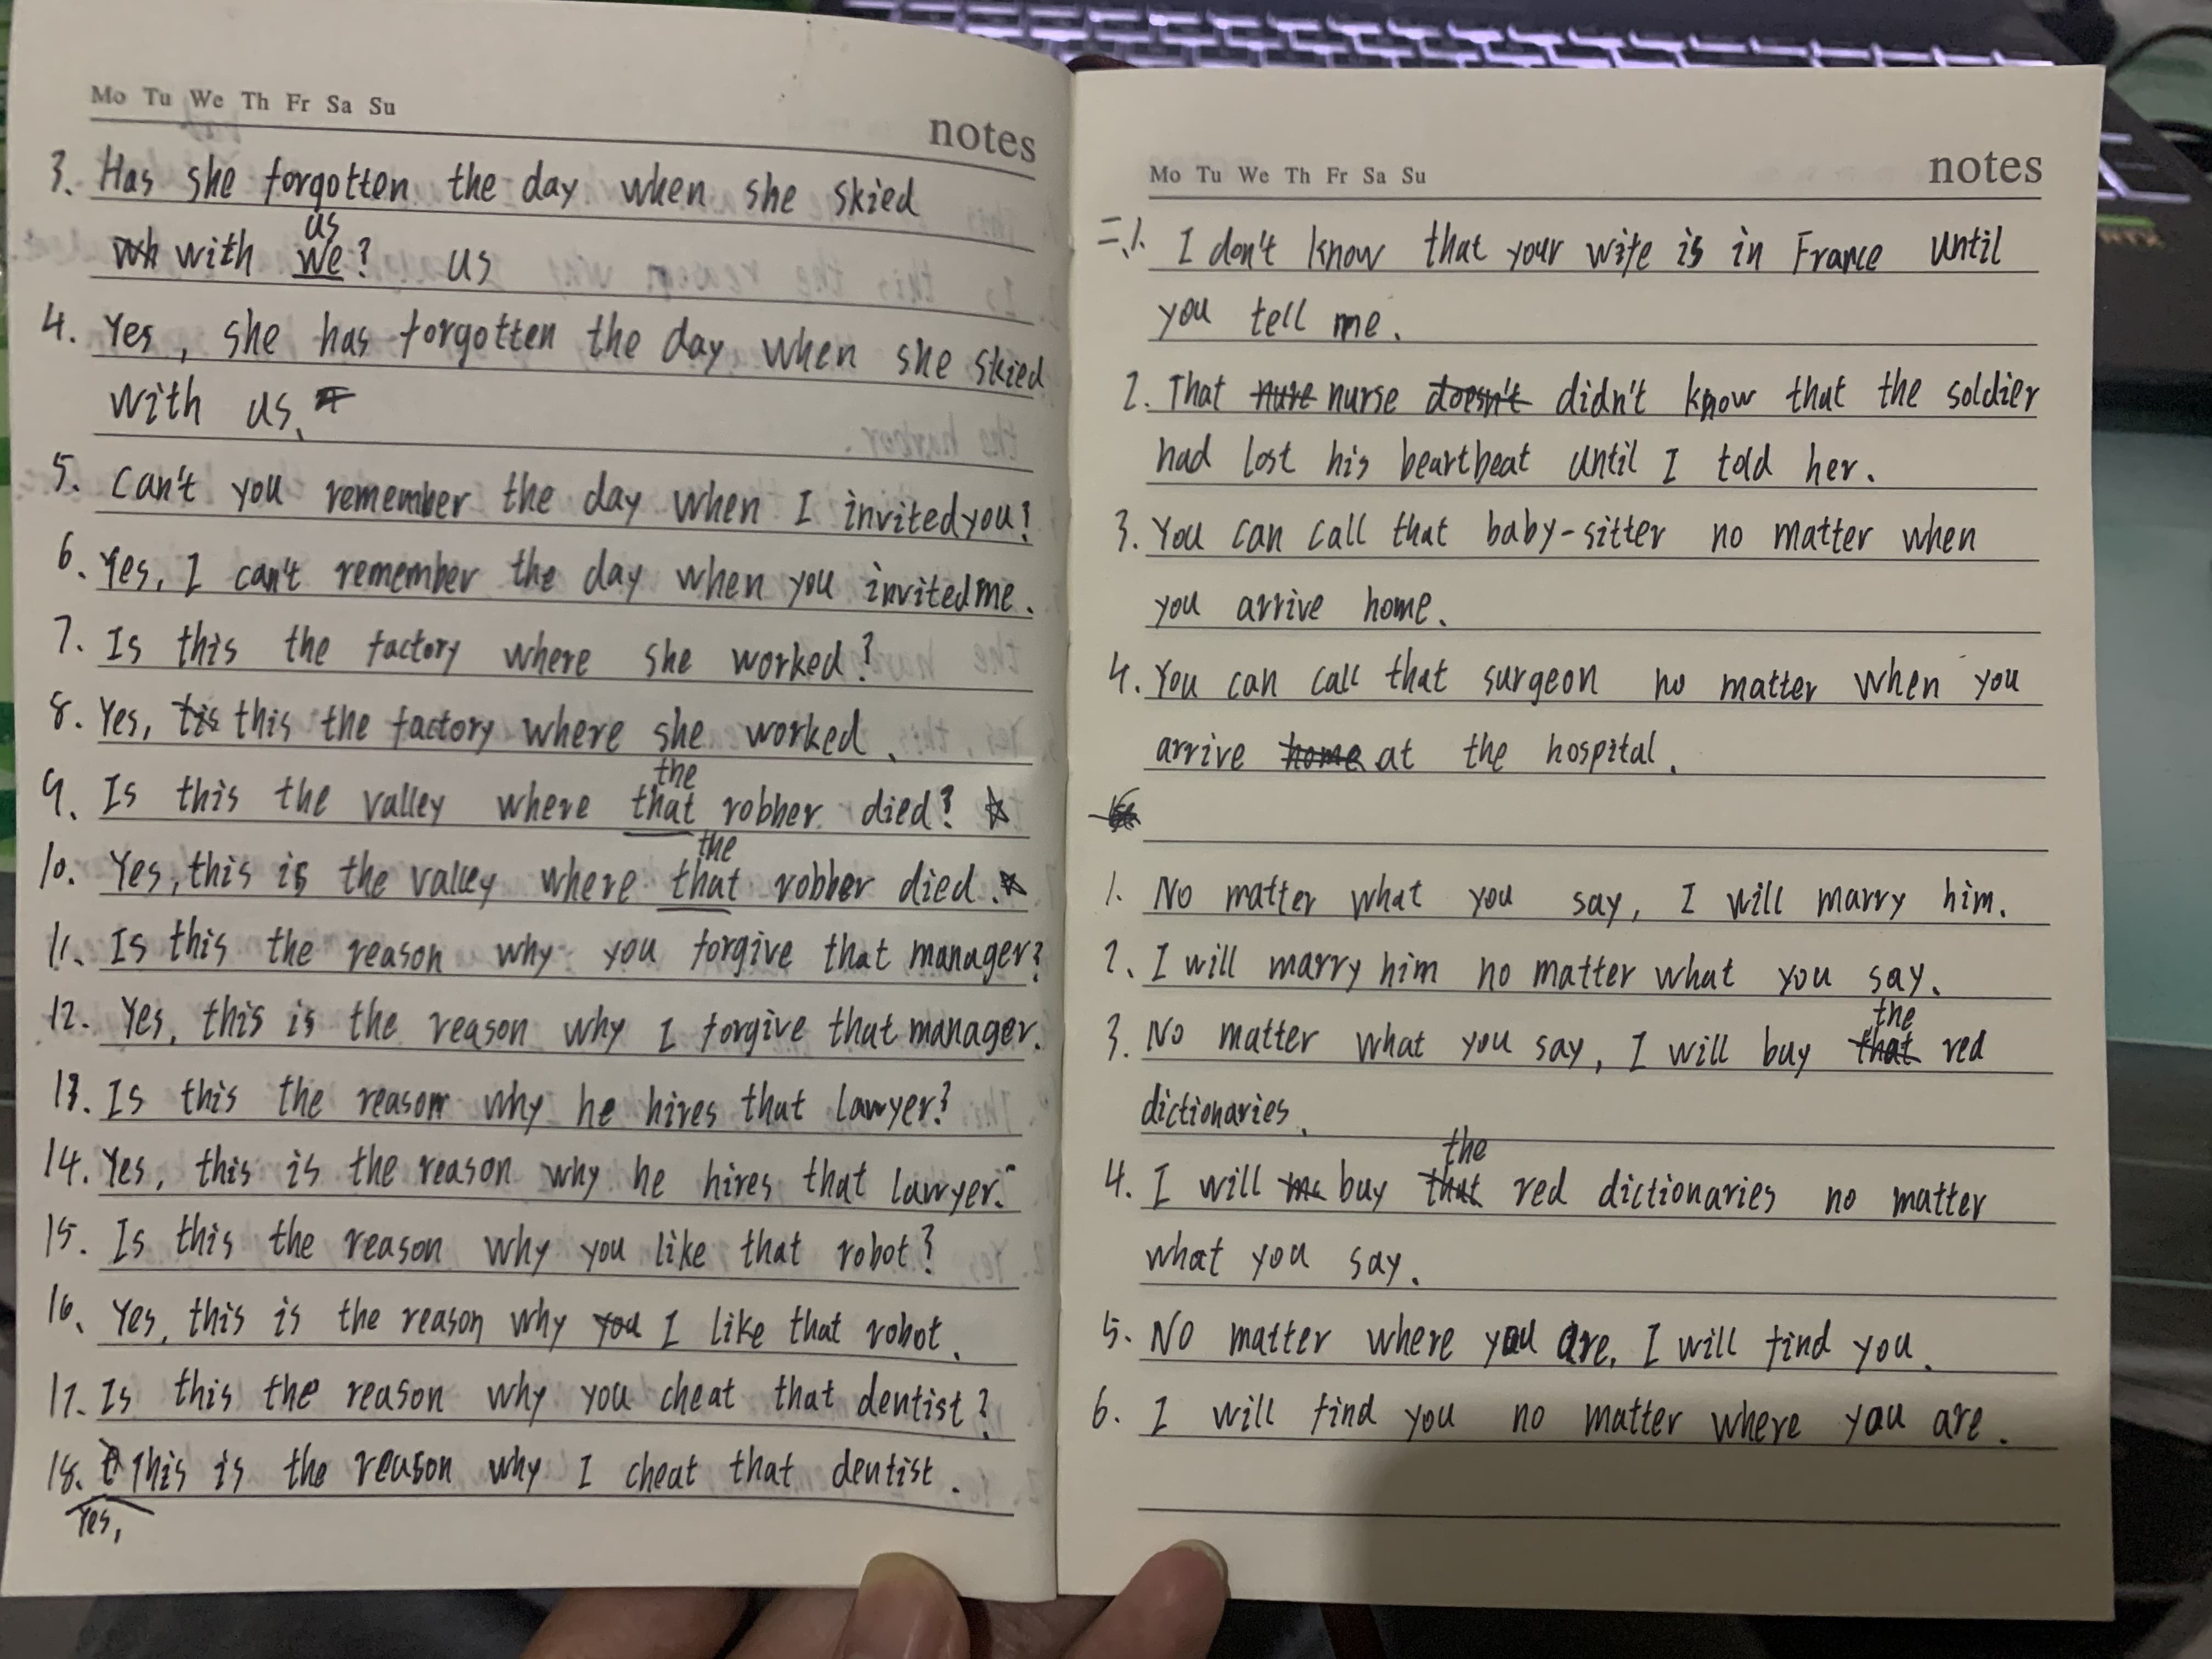 Mo Tu We Th Fr Sa Su
notes
3. Has she forgotten the day when she skied
us
with we? us
4. Yes, she has forgotten the day when she skied
with us.
5. Can't you remember the day when I invited you?
6. Yes, I can't remember the day when you invited me.
7. Is this the factory where she worked?
8. Yes, tis this the factory where she worked.
the
9. Is this the valley where that robber died? ☆
the
10. Yes, this is the valley where that robber died. ☆
11. Is this the reason why you forgive that manager?
12. Yes, this is the reason why I forgive that manager.
13. Is this the reason why he hires that lawyer?
14. Yes, this is the reason why he hires that lawyer.
15. Is this the reason why you like that robot?
16. Yes, this is the reason why you I like that robot.
17. Is this the reason why you cheat that dentist?
18. This is the reason why I cheat that dentist.
Yes,
Mo Tu We Th Fr Sa Su
notes
二、1. I don't know that your wife is in France until
you tell me.
2. That nure nurse doesn't didn't know that the soldier
had lost his beartbeat until I told her.
3. You can call that baby-sitter no matter when
you arrive home.
4. You can call that surgeon no matter when you
arrive home at the hospital.
1. No matter what you say, I will marry him.
2. I will marry him no matter what you say.
the
3. No matter what you say, I will buy that red
dictionaries.
the
4. I will ma buy that red dictionaries no matter
what you say.
5. No matter where you are, I will find you.
6. I will find you no matter where you are.